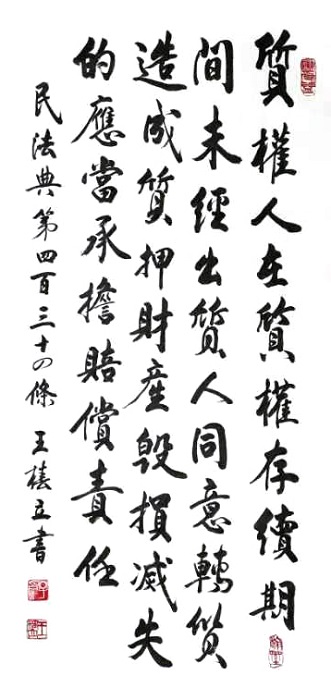 質權人在質權存續期
間未經出質人同意轉質
造成質押財產毀損滅失
的應當承擔賠償責任
民法典第四百三十四條 王立書